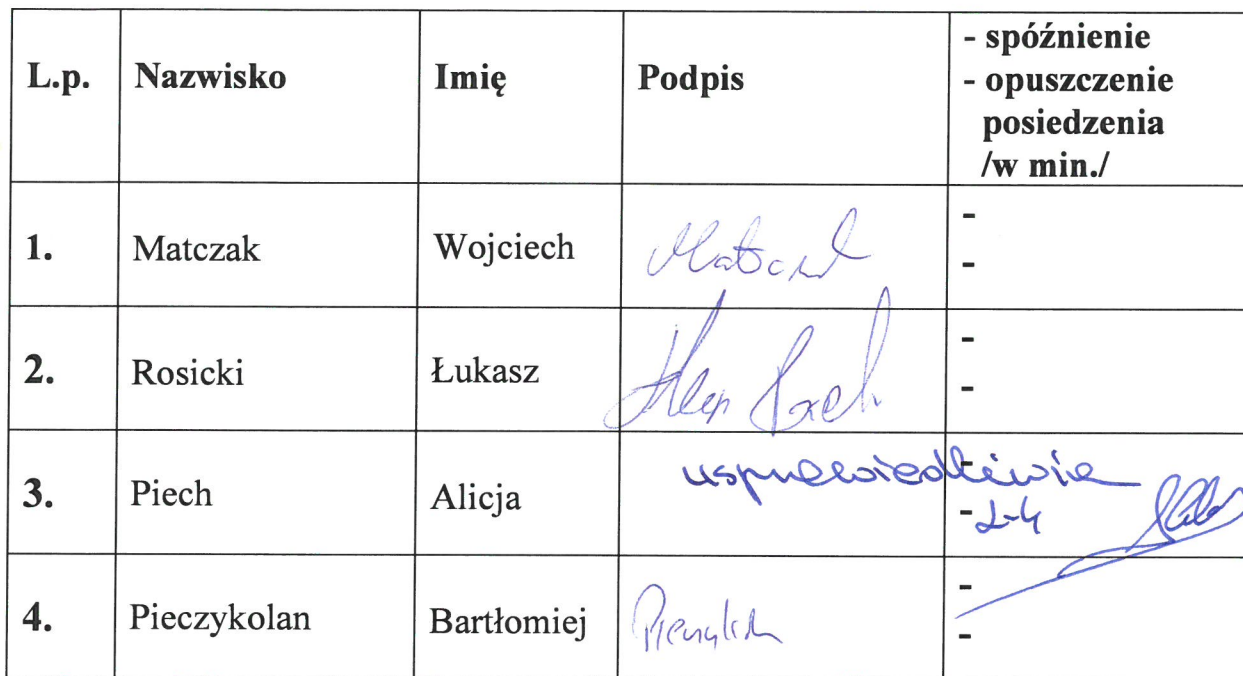 L.p. Nazwisko Imię Podpis - spóźnienie
- opuszczenie
posiedzenia
/w min./
1. Matczak Wojciech -
-
2. Rosicki Łukasz -
-
3. Piech Alicja usprawiedliwia -
- L-4
4. Pieczykolan Bartłomiej -
-